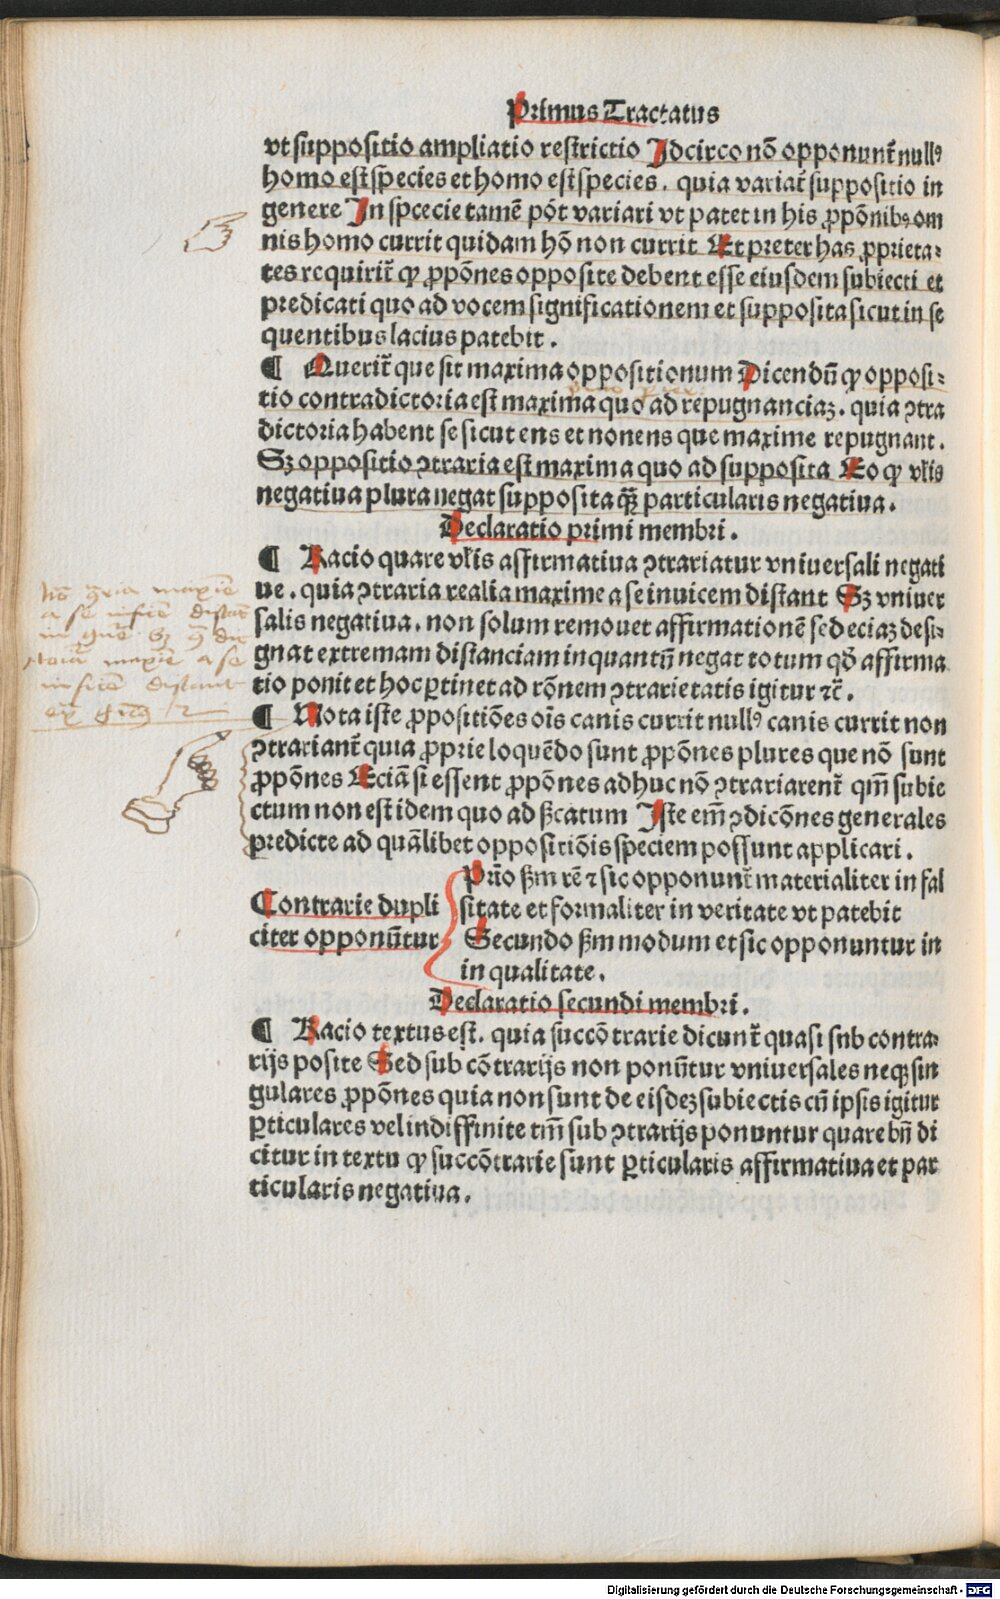 Primus Tractatus
vt suppositio ampliatio restrictio Idcirco nō opponunt᷑ nullꝰ
homo est species et homo est species. quia variat᷑ suppositio in
genere In spcecie tamē pōt variari vt patet in his ꝓpōnib⁹ om
nis homo currit quidam hō non currit Et preter has ꝓprieta⸗
tes requirit᷑ ꝙ ꝓpōnes opposite debent esse eiusdem subiecti et
predicati quo ad vocem significationem et supposita sicut in se
quentibus lacius patebit.
¶ Querit᷑ que sit maxima oppositionum Dicendū ꝙ opposi⸗
tio contradictoria est maxima quo ad repugnanciaꝫ. quia ꝯtra
dictoria habent se sicut ens et non ens que maxime repugnant.
Sꝫ oppositio ꝯtraria est maxima quo ad supposita Eo ꝙ vłis
negatiua plura negat supposita qȝ̄ particularis negatiua.
Declaratio primi membri.
¶ Racio quare vłis affirmatiua ꝯtrariatur vniuersali negati
ue. quia ꝯtraria realia maxime a se inuicem distant Sꝫ vniuer
salis negatiua. non solum remouet affirmationē sed eciaꝫ desi⸗
gnat extremam distanciam inquantū negat totum qd̄ affirma
tio ponit et hoc ꝑtinet ad rōnem ꝯtrarietatis igitur ⁊c̄.
¶ Nota iste ꝓpositiōes oīs canis currit nullꝰ canis currit non
ꝯtrariant᷑ quia ꝓprie loquēdo sunt ꝓpōnes plures que nō sunt
ꝓpōnes Eciā si essent ꝓpōnes adhuc nō ꝯtrariarent᷑ qm̄ subie
ctum non est idem quo ad ßcatum Iste em̄ ꝯdicōnes generales
predicte ad quālibet oppositiōis speciem possunt applicari.
Prīo ßm rē ⁊ sic opponunt᷑ materialiter in fal
Contrarie dupli
sitate et formaliter in veritate vt patebit
citer opponūtur
Secundo ßm modum et sic opponuntur in
in qualitate.
Declaratio secundi membri.
¶ Racio textus est. quia succōtrarie dicunt᷑ quasi snb contra⸗
rijs posite Sed sub cōtrarijs non ponūtur vniuersales neqꝫ sin
gulares ꝓpōnes quia non sunt de eisdeꝫ subiectis cū ipsis igitur
ꝑticulares vel indiffinite tm̄ sub ꝯtrarijs ponuntur quare bn̄ di
citur in textu ꝙ succōtrarie sunt ꝑticularis affirmatiua et par
ticularis negatiua.
Digitalisierung gefördert durch die Deutsche Forschungsgemeinschaft - DFG